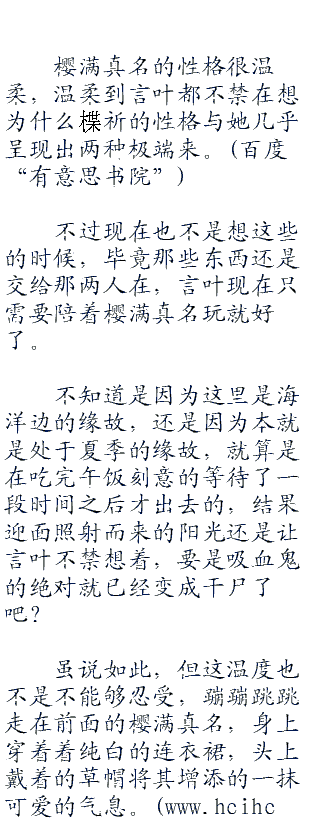 樱满真名的性格很温
柔，温柔到言叶都不禁在想
为什么楪祈的性格与她几乎
呈现出两种极端来。(百度
“有意思书院”)
不过现在也不是想这些
的时候，毕竟那些东西还是
交给那两人在，言叶现在只
需要陪着樱满真名玩就好
了。
不知道是因为这里是海
洋边的缘故，还是因为本就
是处于夏季的缘故，就算是
在吃完午饭刻意的等待了一
段时间之后才出去的，结果
迎面照射而来的阳光还是让
言叶不禁想着，要是吸血鬼
的绝对就已经变成干尸了
吧？
虽说如此，但这温度也
不是不能够忍受，蹦蹦跳跳
走在前面的樱满真名，身上
穿着着纯白的连衣裙，头上
戴着的草帽将其增添的一抹
可爱的气息。(www.hcihc